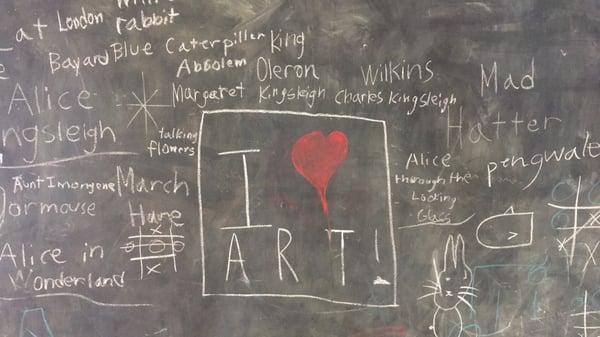 London
rabbit
Bayard
Blue Caterpillar
Absolem
King
Oleron
Wilkins
Mad
Hatter
Alice
Kingsleigh
Margaret Kingsleigh
Charles Kingsleigh
talking
flowers
I
ART!
Alice
through the
Looking
Glass
Aunt Imogene
March
Hare
Dormouse
Alice in
Wonderland